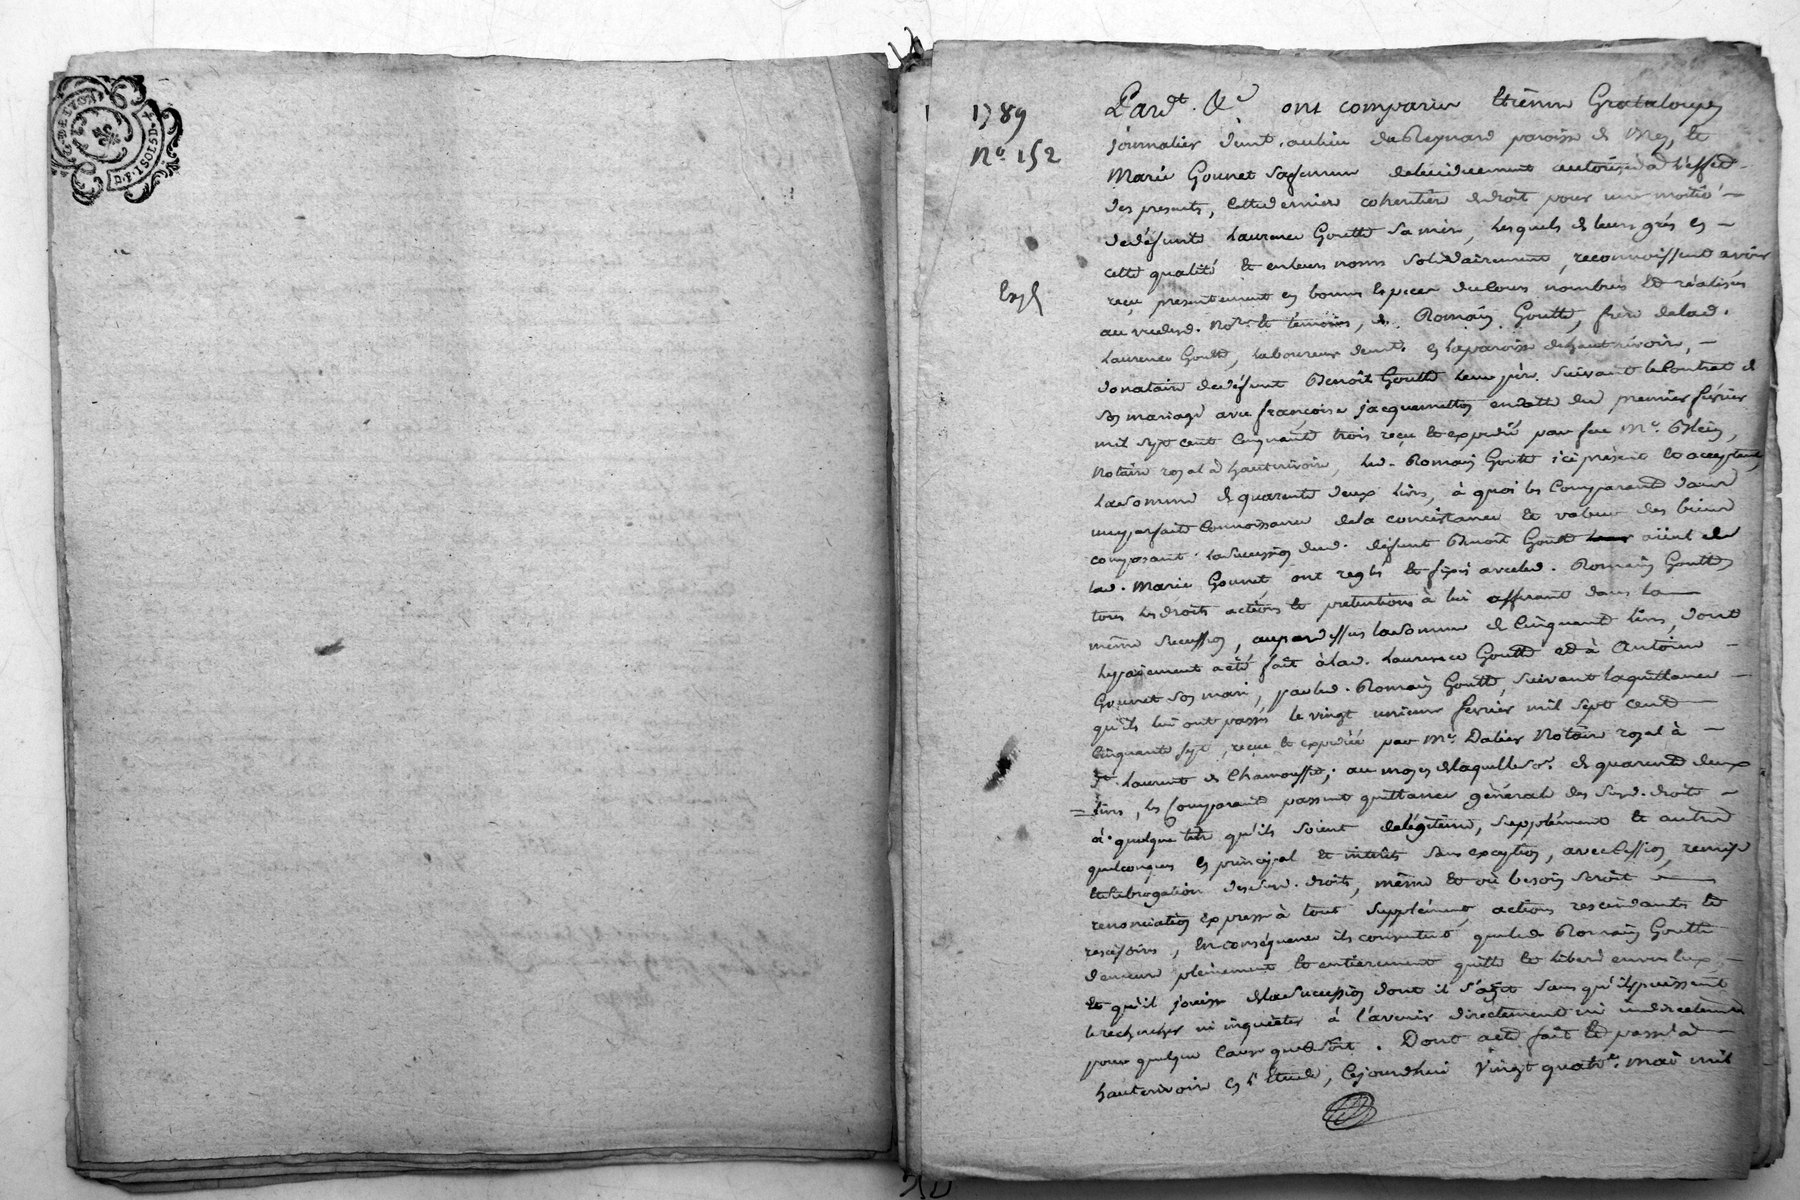 G. DE LYON
D. P. 1 SOL 8 D.
1789
N.° 152
Expé
Pard.t &c ont comparus Etienne Grataloup
journalier demt. au lieu de Reynard paroisse de Mey, et
Marie Gounet sa femme de lui duement autorisée à l'effet
des presents, cette derniere coheritiere de droit pour une moitié
de défunte Laurence Goutte sa mere, lesquels de leurs grés en
cette qualité et en leurs noms solidairement, reconnoissent avoir
reçu presentement en bonnes especes du cours nombrés et réalisés
au vu desd. No.res et témoins, de Romain Goutte, frere de lad.
Laurence Goutte, laboureur demt. en la paroisse de hauterivoire,
donataire de défunt Benoît Goutte leur père, suivant le Contrat de
son mariage avec françoise jacquemetton en datte du premier février
mil sept cent cinquante trois reçu et expedié par feu Me.
Notaire royal à hauterivoire, led. Romain Goutte ici présent et acceptant,
la somme de quarante deux livres, à quoi les Comparants dans
une parfaite connoissance de la concistance et valeur des biens
composant la succession dud. défunt Benoît Goutte aïeul de
lad. Marie Gounet ont reglé et fixé avec led. Romain Goutte
tous les droits actions et pretentions à lui afferant dans la
même succession, au par dessus la somme de Cinquante livres, dont
le payement a été fait à lad. Laurence Goutte et à Antoine
Gounet son mari, par led. Romain Goutte, suivant la quittance
qu'ils lui ont passés le vingt unieme fevrier mil sept cent
cinquante sept, reçue et expediée par Me. Dalier Notaire royal à
St. Laurent de Chamousset; au moyen de laquelle so.e de quarante deux
livres, les Comparants passent quittance général des susd. droits
à quelque titre qu'ils soient de légitime, supplément et autres
quelconques en principal et interêts sans exception, avec cession, remise
et subrogation des susd. droits, même et où besoin seroit
renonciation expresse à tout supplément, actions rescindants et
rescisoires, En conséquence ils consentent que led. Romain Goutte
demeure pleinement et entierement quitte et liberé envers eux,
et qu'il jouisse de la succession dont il s'agit sans qu'ils puissent
le rechercher ni inquiéter à l'avenir directement ni indirectement
pour quelque cause que ce soit. Dont acte fait et passé à
hauterivoire en l'Etude, cejourdhui vingt quatre mai mil